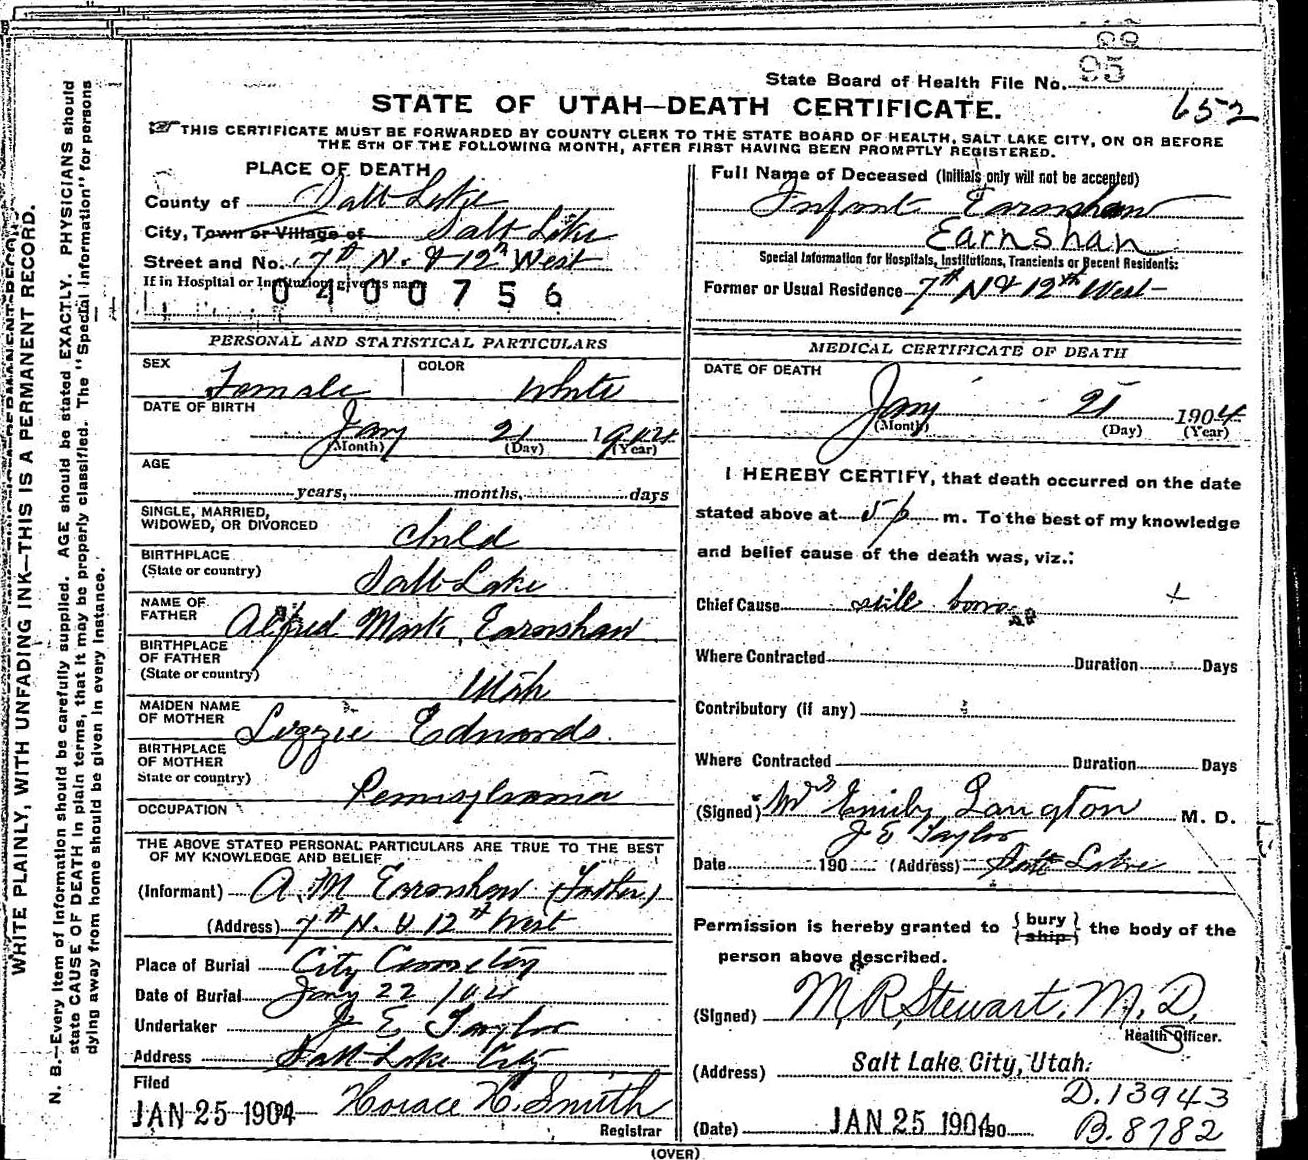 State Board of Health File No. 95
652
STATE OF UTAH—DEATH CERTIFICATE.
THIS CERTIFICATE MUST BE FORWARDED BY COUNTY CLERK TO THE STATE BOARD OF HEALTH, SALT LAKE CITY, ON OR BEFORE
THE 5TH OF THE FOLLOWING MONTH, AFTER FIRST HAVING BEEN PROMPTLY REGISTERED.
PLACE OF DEATH
County of Salt Lake
City, Town or Village of Salt Lake
Street and No. 7th N. & 12th West
If in Hospital or Institution give its name
0400756
Full Name of Deceased (Initials only will not be accepted)
Infant Earnshaw
Earnshan
Special Information for Hospitals, Institutions, Trancients or Recent Residents:
Former or Usual Residence 7th N & 12th West
PERSONAL AND STATISTICAL PARTICULARS
SEX Female COLOR White
DATE OF BIRTH
Jany 21 1904
(Month) (Day) (Year)
AGE
years, months, days
SINGLE, MARRIED,
WIDOWED, OR DIVORCED child
BIRTHPLACE
(State or country) Salt Lake
NAME OF
FATHER Alfred Mark Earnshaw
BIRTHPLACE
OF FATHER
(State or country) Utah
MAIDEN NAME
OF MOTHER Lizzie Edwards
BIRTHPLACE
OF MOTHER
State or country) Pennsylvania
OCCUPATION
THE ABOVE STATED PERSONAL PARTICULARS ARE TRUE TO THE BEST
OF MY KNOWLEDGE AND BELIEF
(Informant) A. M Earnshaw (Father)
(Address) 7th N. & 12th West
Place of Burial City Cemetery
Date of Burial Jany 22 104
Undertaker J. E. Taylor
Address Salt Lake City
Filed
JAN 25 1904 Horace H. Smith
Registrar
MEDICAL CERTIFICATE OF DEATH
DATE OF DEATH
Jany 21 1904
(Month) (Day) (Year)
I HEREBY CERTIFY, that death occurred on the date
stated above at 5 p m. To the best of my knowledge
and belief cause of the death was, viz.:
Chief Cause still born
Where Contracted Duration Days
Contributory (if any)
Where Contracted Duration Days
(Signed) Mrs Emily Langton M. D.
J E Taylor
Date 190 (Address) Salt Lake
Permission is hereby granted to {bury} {ship} the body of the
person above described.
(Signed) M. R. Stewart, M. D.
Health Officer.
(Address) Salt Lake City, Utah.
D. 13943
(Date) JAN 25 1904 190
B. 8782
(OVER)
WRITE PLAINLY, WITH UNFADING INK—THIS IS A PERMANENT RECORD.
N. B.—Every item of information should be carefully supplied. AGE should be stated EXACTLY. PHYSICIANS should
state CAUSE OF DEATH in plain terms, that it may be properly classified. The "Special Information" for persons
dying away from home should be given in every instance.